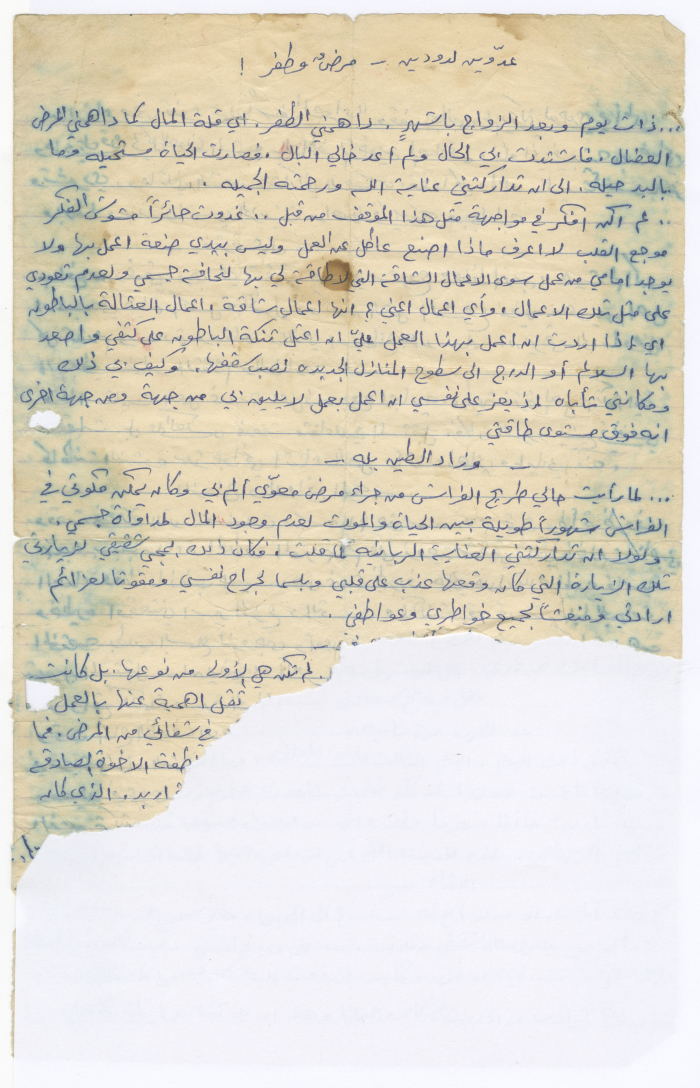 عدوّين لدودين - مرض وظفر !
... ذات يوم وبعد الزواج باشهرٍ . داهمني الظفر . اي قلة المال كما داهمني المرض
العضال . فاشتدت بي الحال ولم أعد خالي البال . فصارت الحياة مستحيله وما
باليد حيلة . الى ان تداركتني عناية الله ورحمته الجميله .
.. لم اكن افكر في مواجهة مثل هذا الموقف من قبل .. غدوت حائراً مشوش الفكر
موجع القلب لا اعرف ماذا اصنع عاطل عن العمل وليس بيدي صنعة اعمل بها ولا
يوجد امامي من عمل سوى الاعمال الشاقة التي لا طاقة لي بها لنحافة جسمي ولعدم تعودي
على مثل تلك الاعمال . وأي اعمال اعني ؟ انها اعمال شاقة . اعمال العتالة بالباطون
اي إذا اردت ان اعمل بهذا العمل عليّ ان اعتل تنكة الباطون على كتفي واصعد
بها السلالم أو الدرج الى سطوح المنازل الجديده لصب سقفها . وكيف بي ذلك
ومكانتي تأباه إذ يعز على نفسي ان اعمل بعمل لا يليق بي من جهة ومن جهة اخرى
انه فوق مستوى طاقتي
- وزاد الطين بله -
... لما رأيت حالي طريح الفراش من جراء مرض معوّي ألم بي وكان يمكن مكوثي في
الفراش شهوراً طويلة بين الحياة والموت لعدم وجود المال لمداواة جسمي .
ولولا ان تداركتني العناية الربانيه لما قلت . فكان ذلك بمجيء شقيقي لزيارتي
تلك الزيارة التي كان وقعها عذب على قلبي وبلسما لجراح نفسي ومقوتا لعزائم
ارادتي ومنعشاً لجميع خواطري وعواطفي .
لم تكن هي الأولى من نوعها . بل كانت
تقل اهمية عنها بالعمل
في شفائي من المرض . فما
طفة الاخوة الصادقه
اربد . الذي كان